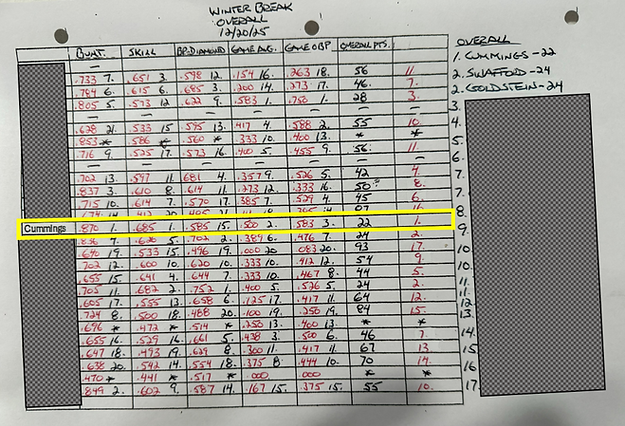 WINTER BREAK
OVERALL
12/20/25
BUNT. SKILL BP-DIAMOND GAME AVG. GAME OBP OVERALL PTS.
—
.733 7. .651 3. .598 12. .154 16. .263 18. 56 11.
.784 6. .615 6. .685 3. .200 14. .273 17. 46 7.
.805 5. .573 12 .622 9. .583 1. .750 1. 28 3.
—
.628 21. .533 15 .595 13. .417 4. .588 2. 55 10.
.853 * .586 * .560 * .333 10 .400 13. * *
.716 9. .525 17. .573 16. .400 5 .455 9. 56 11.
—
.702 13. .597 11 .681 4. .357 9. .526 5. 42 4.
.837 3. .610 8. .614 11. .273 12. .333 16. 50 8.
.715 10. .614 7. .570 17. .385 7. .529 4. 45 6.
Cummings .870 1. .685 1. .585 15. .500 2. .583 3. 22 1.
.836 .620 5. .702 2. .389 6. .476 7. 24 2.
.640 19. .533 15. .496 19. .000 20 .083 20. 93 17.
.702 12. .600 10. .620 10. .333 10. .412 12. 54 9.
.655 15. .641 4. .644 7. .333 10. .467 8. 44 5.
.705 11. .682 2. .752 1. .400 5. .526 5. 24 2.
.605 17. .555 13. .658 6. .125 17. .417 11. 64 12.
.724 8. .500 18. .488 20. .100 19. .250 19. 84 15.
.696 * .472 * .514 * .250 13. .400 13. * *
.655 16. .529 16. .661 5. .438 3. .500 6. 46 7.
.647 18. .493 19. .629 8. .300 11. .417 11. 67 13
.638 20. .542 14. .554 18. .375 8 .444 10. 70 14.
.470 * .441 * .517 * .000 .000 * *
.849 2. .602 9. .587 14. .167 15. .375 15. 55 10.
OVERALL
1. CUMMINGS - 22
2. SWAFFORD - 24
2. GOLDSTEIN - 24
3.
4.
5.
6.
7.
7.
8.
9.
10
10.
11.
11.
12.
13.
14.
15.
16
17.